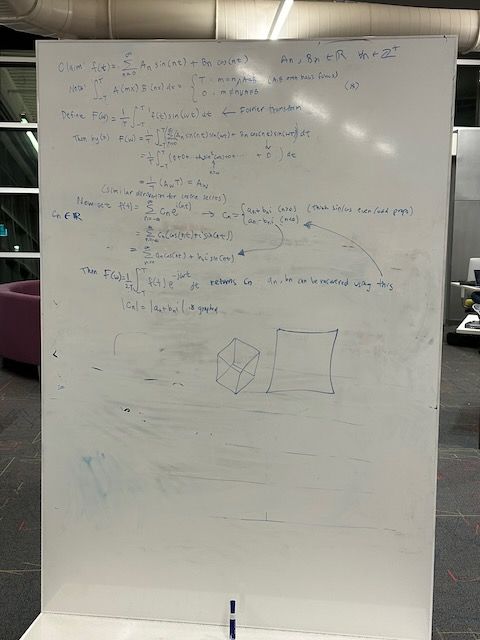 Claim: f(t) = ∞Σn=0 An sin(nt) + Bn cos(nt)    An, Bn ∈ ℝ ∀n ∈ ℤ⁺
Note: ∫_{-T}^{T} A(mx) B(nx) dx = { T : m=n, A=B
0 : m≠n, A≠B    (*)
Define F(ω) = 1/T ∫_{-T}^{T} f(t) sin(ωt) dt ← Fourier Transform
Then by (*) F(ω) = 1/T ∫_{-T}^{T} [Σ An sin(nt) sin(ωt) + Bn cos(nt) sin(ωt)] dt
= 1/T ∫_{-T}^{T} (0+0+ ... + 0) dt
= 1/T (AωT) = Aω
(similar derivation for cosine series)
Now set f(t) = ∞Σn=-∞ Cn e^{i(nt)} → Cn = { an+bni (n≥0)
an-bni (n<0)    (Think sin/cos even/odd props)
Cn ∈ ℝ
= ∞Σn=-∞ Cn(cos(nt)+i sin(nt))
= ∞Σn=0 an cos(nt) + bn i sin(nt)
Then F(ω) = 1/2T ∫_{-T}^{T} f(t) e^{-jωt} dt returns Cn    an, bn can be recovered using this
|Cn| = |an+bni| is graphed